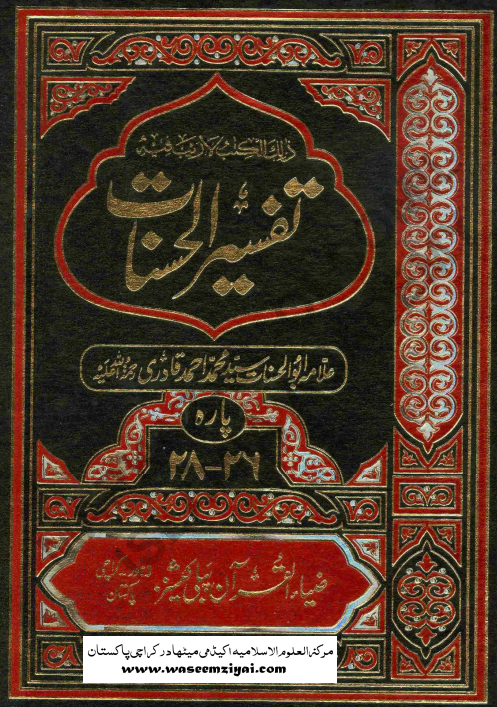 ذلك الكتب لا ريب فيه
تفسیر الحسنات
علامہ ابوالحسنات سید محمد احمد قادری رحمۃ اللہ علیہ
پارہ
۲۶-۲۸
ضیاء القرآن پبلی کیشنز
لاہور۔کراچی
پاکستان
مرکز العلوم الاسلامیہ اکیڈمی میٹھادر کراچی پاکستان
www.waseemziyai.com